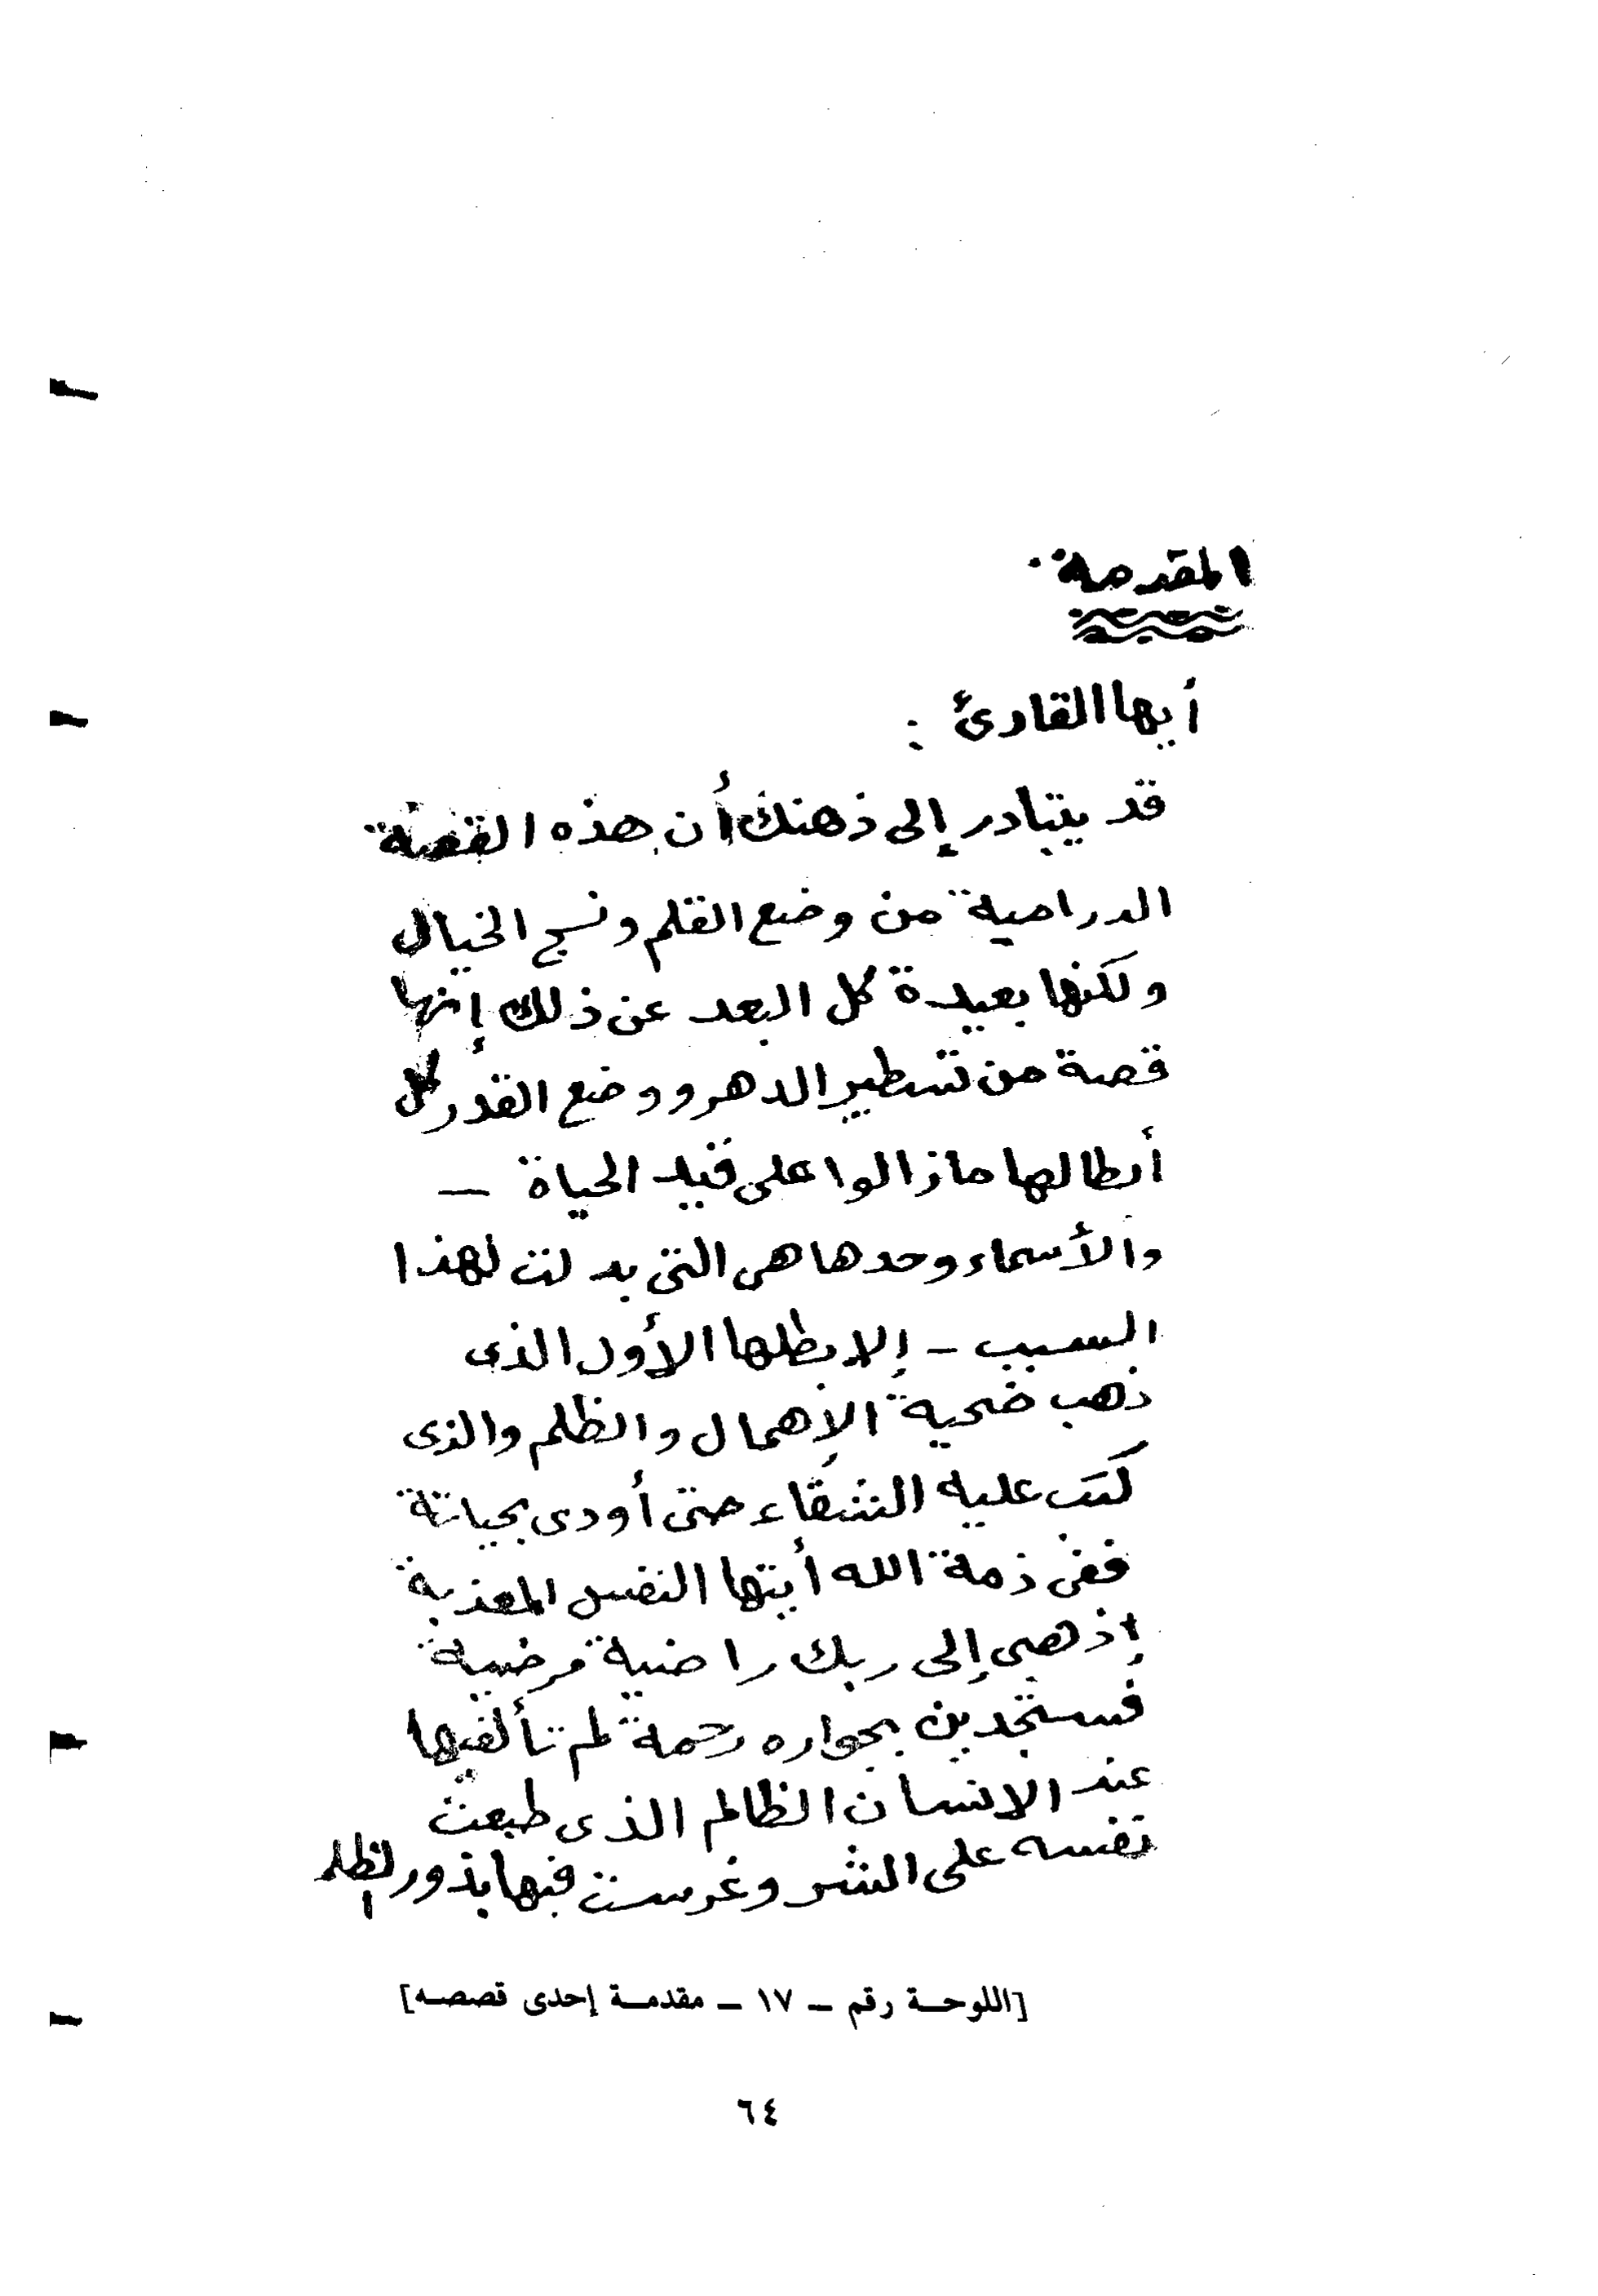 المقدمة .
أيها القارئ :
قد يتبادر إلى ذهنك أن هذه القصة
الدرامية من وضع القلم ونسج الخيال
ولكنها بعيدة كل البعد عن ذلك إنها
قصة من تسطير الدهر ووضع القدر كل
أبطالها مازالوا على قيد الحياة –
والأسماء وحدها هى التى بدلت لهذا
السبب – إلا بطلها الأول الذى
ذهب ضحية الإهمال والظلم والذى
كتب عليه الشقاء حتى أودى بحياتة
ففى ذمة الله أيتها النفس المعذبة
إذهبى إلى ربك راضية مرضية
فستجدين بجواره رحمة لم تألفيها
عند الانسان الظالم الذى طبعت
نفسه على الشر وغرست فيها بذور الظلم
[اللوحة رقم – ١٧ – مقدمة إحدى قصصه]
٦٤